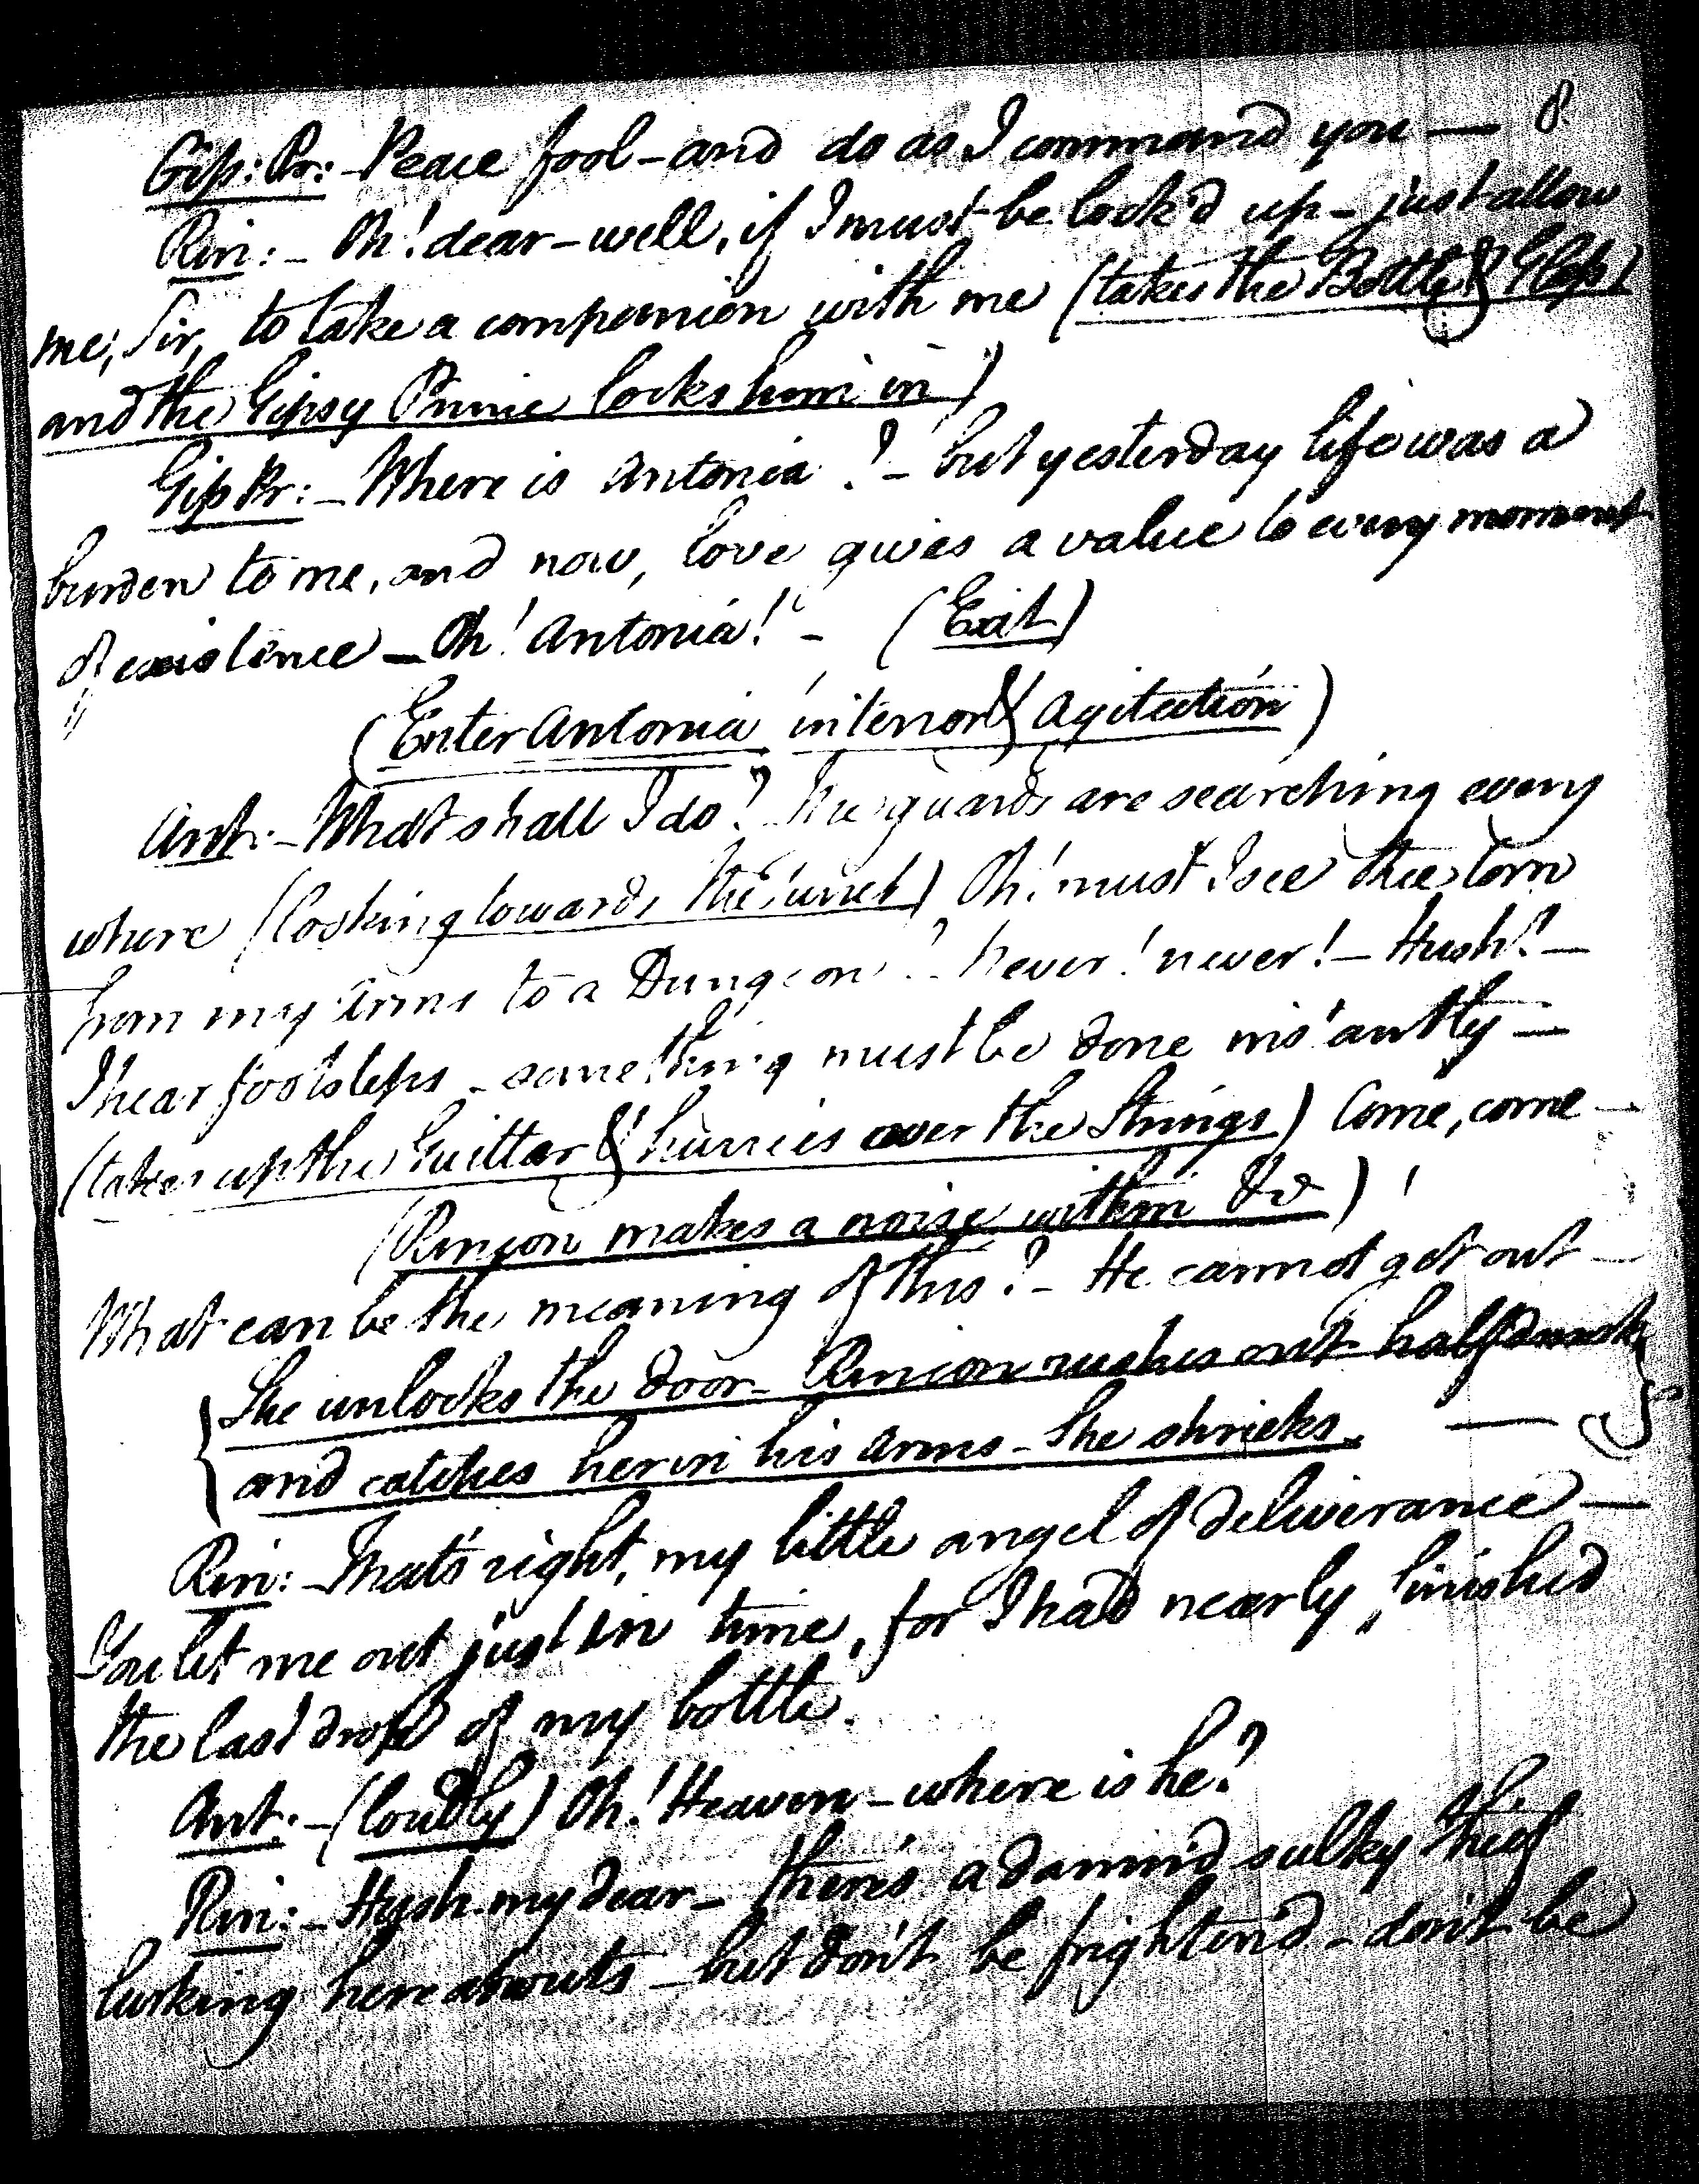 8.
Gip: Pr: - Peace fool - and do as I command you —
Rin: - Oh! dear - well, if I must be lock'd up - just allow
me, Sir, to take a companion with me (takes the Bottle & Glass)
and the Gipsy Prince locks him in)
Gip Pr: - Where is Antonia? - but yesterday life was a
burden to me, and now, love gives a value to every moment
of existence - Oh! Antonia! - (Exit)
(Enter Antonia in terror & agitation)
Ant: - What shall I do? The guards are searching every
where (looking towards the turret) Oh! must I see thee torn
from my arms to a Dungeon? - Never! never! - Hush! -
I hear footsteps - something must be done instantly —
(takes up the Guittar & hurries over the Strings) Come, come —
(Rincon makes a noise within &c)
What can be the meaning of this? - He cannot get out —
{She unlocks the door - Rincon rushes out half drunk
and catches her in his arms - She shrieks. — }
Rin: - That's right, my little angel of deliverance —
You let me out just in time, for I had nearly finish'd
the last drop of my bottle.
Ant: - (loudly) Oh! Heaven - where is he?
Rin: - Hush my dear - there's a damn'd sulky thief
lurking here abouts - but don't be frighten'd - don't be